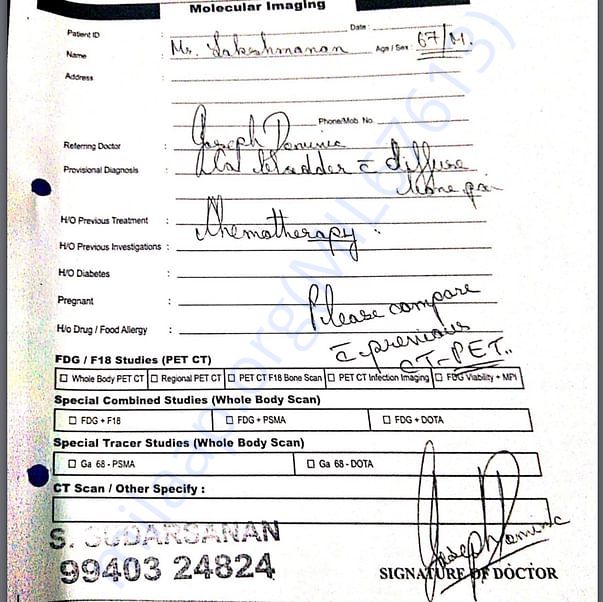 Molecular Imaging
Patient ID : Date :
Name : Mr. Lakeshmanan Age / Sex : 67/M.
Address :
Phone/Mob. No.
Referring Doctor : Joseph Dominic
Provisional Diagnosis : bladder c̄ diffuse
bone pai
H/O Previous Treatment : Chemotherapy :
H/O Previous Investigations :
H/O Diabetes :
Pregnant : Please compare
H/o Drug / Food Allergy : c̄ previous
CT-PET..
FDG / F18 Studies (PET CT)
☐ Whole Body PET CT ☐ Regional PET CT ☐ PET CT F18 Bone Scan ☐ PET CT Infection Imaging ☐ FDG Viability + MPI
Special Combined Studies (Whole Body Scan)
☐ FDG + F18 ☐ FDG + PSMA ☐ FDG + DOTA
Special Tracer Studies (Whole Body Scan)
☐ Ga 68 - PSMA ☐ Ga 68 - DOTA
CT Scan / Other Specify :
S. SUDARSANAN
99403 24824
Joseph Dominic
SIGNATURE OF DOCTOR
milaap.org(MIL67613)